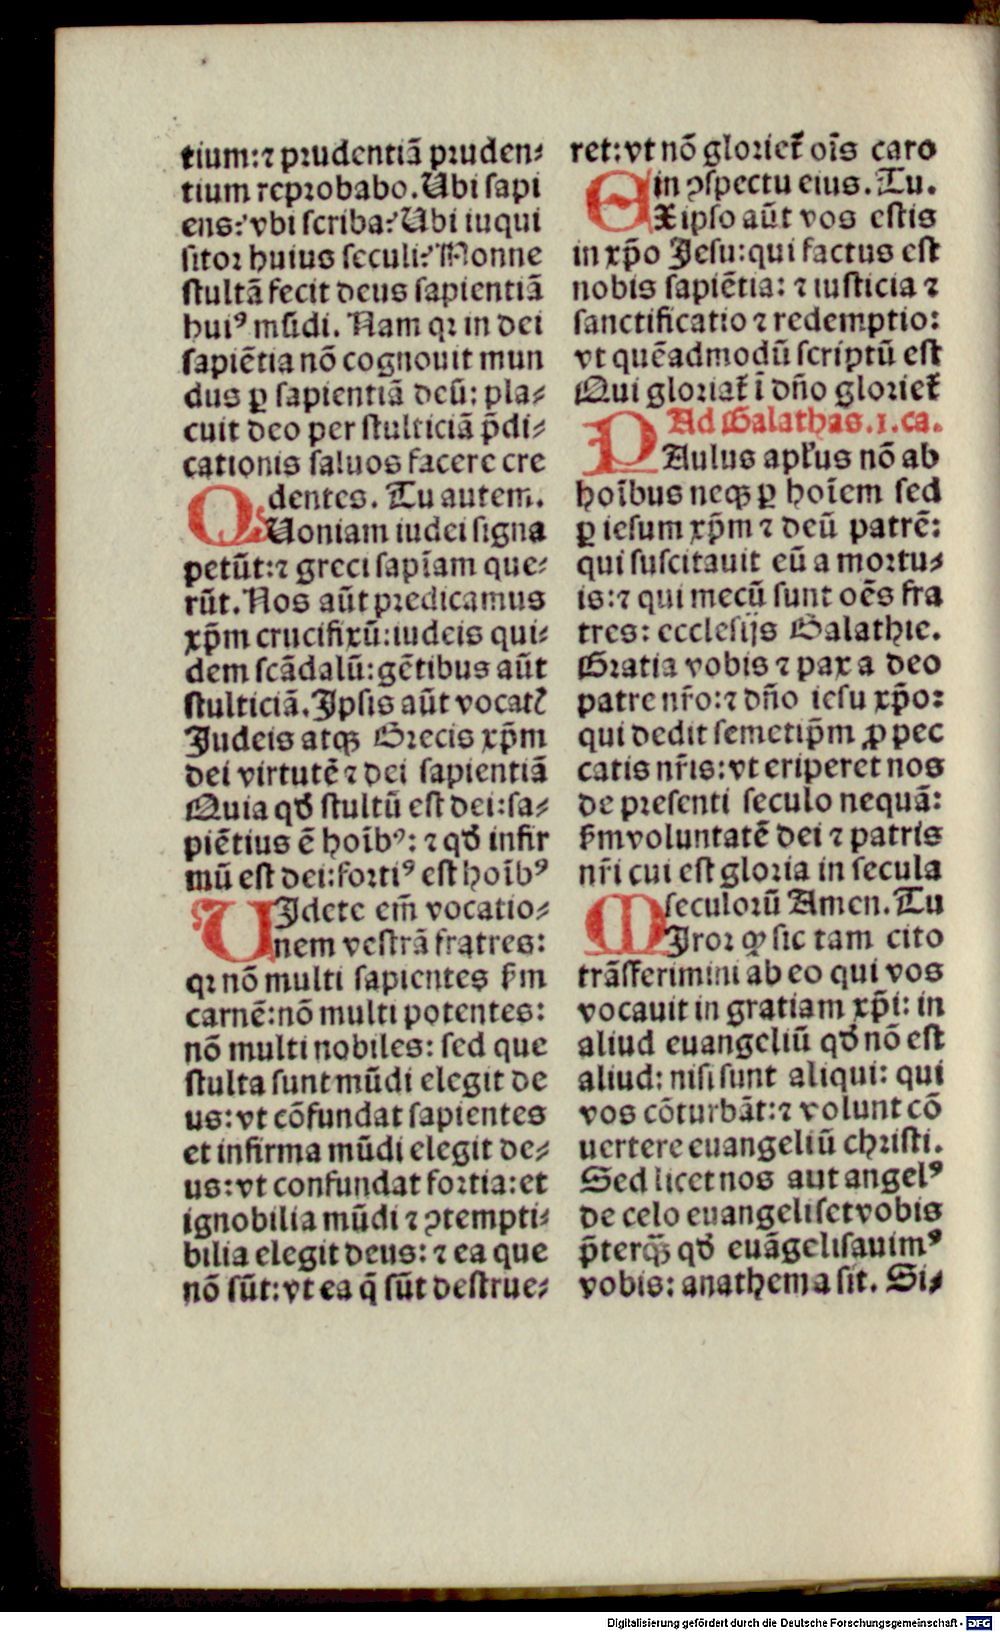 tium:⁊ prudentiā pruden⸗
tium reprobabo. Ubi sapi
ens:ʼ vbi scriba:ʼ Ubi iuqui
sitor huius seculi:ʼ Nonne
stultā fecit deus sapientiā
huiꝰ mūdi. Nam qꝛ in dei
sapiētia nō cognouit mun
dus ꝑ sapientiā deū: pla⸗
cuit deo per stulticiā p̄di⸗
cationis saluos facere cre
dentes. Tu autem.
QUoniam iudei signa
petūt:⁊ greci sapīam que⸗
rūt. Nos aūt predicamus
xp̄m crucifixū: iudeis qui⸗
dem scādalū: gētibus aūt
stulticiā. Ipsis aūt vocatꝭ
Judeis atqꝫ Grecis xp̄m
dei virtutē ⁊ dei sapientiā
Quia qđ stultū est dei: sa⸗
piētius ē hoībꝰ: ⁊ qđ infir
mū est dei: fortiꝰ est hoībꝰ
UIdete em̄ vocatio⸗
nem vestrā fratres:
qꝛ nō multi sapientes ẜm
carnē: nō multi potentes:
nō multi nobiles: sed que
stulta sunt mūdi elegit de
us: vt cōfundat sapientes
et infirma mūdi elegit de⸗
us: vt confundat fortia: et
ignobilia mūdi ⁊ ꝯtempti⸗
bilia elegit deus: ⁊ ea que
nō sūt: vt ea q̄ sūt destrue⸗
ret: vt nō glorieť oīs caro
in ꝯspectu eius. Tu.
EXipso aūt vos estis
in xp̄o Jesu: qui factus est
nobis sapiētia: ⁊ iusticia ⁊
sanctificatio ⁊ redemptio:
vt quēadmodū scriptū est
Qui gloriať ī dn̄o glorieť
Ad Galathas. 1. ca.
PAulus apl̓us nō ab
hoībus neqꝫ ꝑ hoīem sed
ꝑ iesum xp̄m ⁊ deū patrē:
qui suscitauit eū a mortu⸗
is: ⁊ qui mecū sunt oēs fra
tres: ecclesijs Galathie.
Gratia vobis ⁊ pax a deo
patre nr̄o: ⁊ dn̄o iesu xp̄o:
qui dedit semetip̄m ꝓ pec
catis nr̄is: vt eriperet nos
de presenti seculo nequā:
ẜm voluntatē dei ⁊ patris
nr̄i cui est gloria in secula
seculorū Amen. Tu
MIror ꝙ sic tam cito
trāsferimini ab eo qui vos
vocauit in gratiam xp̄i: in
aliud euangeliū qđ nō est
aliud: nisi sunt aliqui: qui
vos cōturbāt: ⁊ volunt cō
uertere euangeliū christi.
Sed licet nos aut angelꝰ
de celo euangeliset vobis
p̄terqꝫ̄ qđ euāgelisauimꝰ
vobis: anathema sit. Si⸗
Digitalisierung gefördert durch die Deutsche Forschungsgemeinschaft - DFG